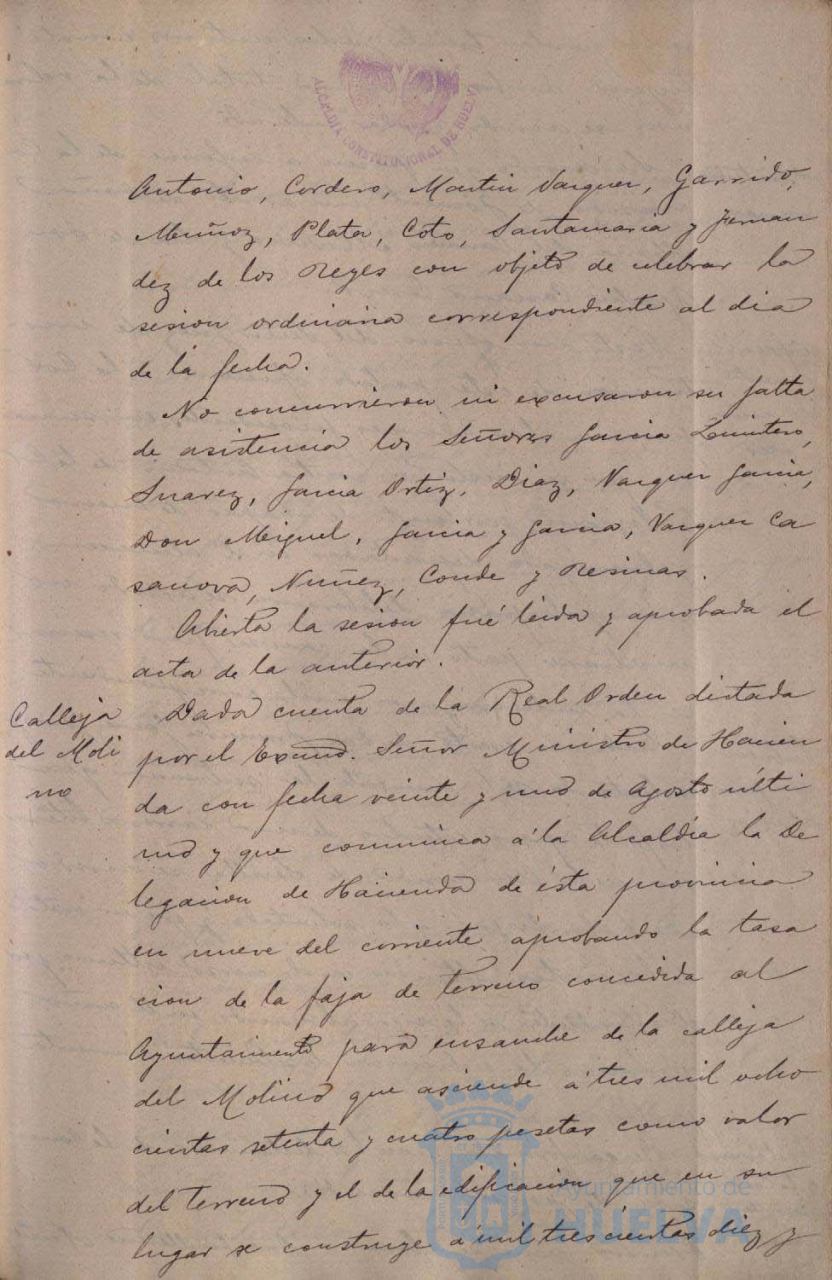 ALCALDIA CONSTITUCIONAL DE HUELVA
Antonio, Cordero, Martin Vazquez, Garrido,
Muñoz, Plata, Coto, Santamaria y Fernan
dez de los Reyes con objeto de celebrar la
sesion ordinaria correspondiente al dia
de la fecha.
No concurrieron ni excusaron su falta
de asistencia los Señores Garcia Quintero,
Suarez, Garcia Ortiz, Diaz, Vazquez Garcia,
Don Miguel, Garcia y Garcia, Vazquez Ca
sanova, Nuñez, Conde y Resinas.
Abierta la sesion fué leida y aprobada el
acta de la anterior.
Calleja
del Moli
no
Dada cuenta de la Real Orden dictada
por el Excmo. Señor Ministro de Hacien
da con fecha veinte y uno de Agosto ulti
mo y que comunica á la Alcaldía la De
legacion de Hacienda de ésta provincia
en nueve del corriente aprobando la tasa
cion de la faja de terreno concedida al
Ayuntamiento para ensanche de la calleja
del Molino que asciende á tres mil ocho
cientas setenta y cuatro pesetas como valor
del terreno y el de la edificacion que en su
lugar se construye á mil trescientas diez y
Ayuntamiento de
HUELVA